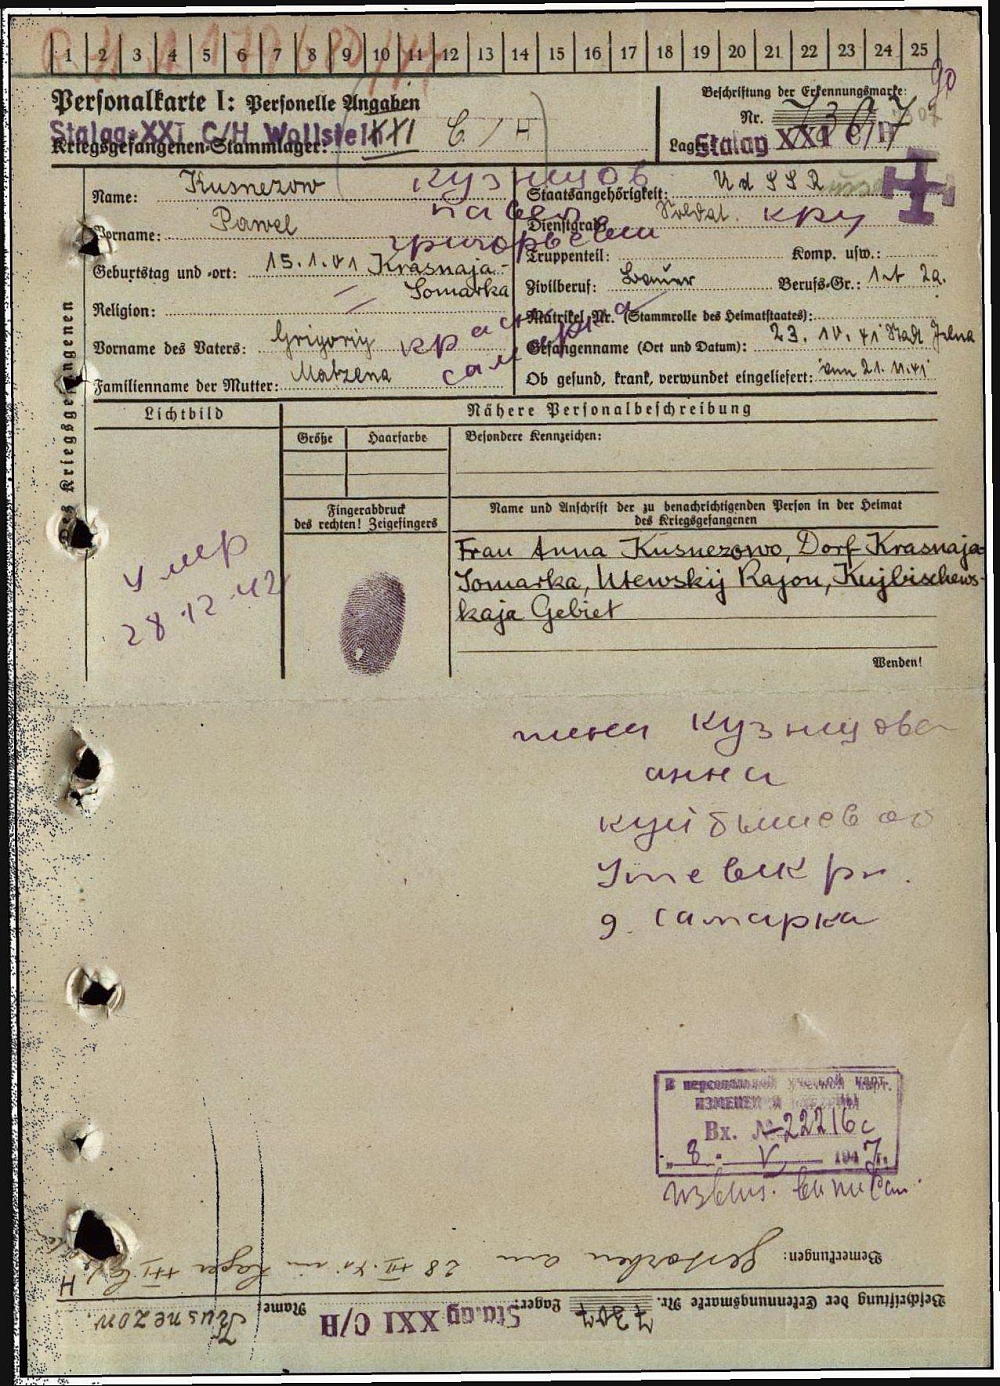 1 2 3 4 5 6 7 8 9 10 11 12 13 14 15 16 17 18 19 20 21 22 23 24 25
Personalkarte I: Personelle Angaben
Stalag XXI C/H Wollstein XXI C/H
Kriegsgefangenen-Stammlager:
Beschriftung der Erkennungsmarke:
Nr. 7307
Lager: Stalag XXI C/H
Des Kriegsgefangenen
Name: Kusnezow
Кузнецов
Vorname: Pawel
Павел
Григорьевич
Geburtstag und -ort: 15.1.01 Krasnaja-
Somarka
Religion:
Vorname des Vaters: Grigorij
Familienname der Mutter: Matzena
Красная
Самарка
Staatsangehörigkeit: UdSSR
Dienstgrad: Soldat.
Truppenteil: Komp. usw.:
Zivilberuf: Bauer Berufs-Gr.: 1.t 2a.
Matrikel Nr. (Stammrolle des Heimatstaates):
Gefangenname (Ort und Datum): 23. 10. 41 Stadt Jelna
Ob gesund, krank, verwundet eingeliefert: vom 21.11.41
Lichtbild
Nähere Personalbeschreibung
Größe Haarfarbe Besondere Kennzeichen:
Fingerabdruck
des rechten! Zeigefingers
Name und Anschrift der zu benachrichtigenden Person in der Heimat
des Kriegsgefangenen
Frau Anna Kusnezowo, Dorf Krasnaja-
Somarka, Utewskij Rajon, Kujbischews-
kaja Gebiet
Wenden!
Умер
28.12.42
жена Кузнецова
анна
куйбышев об
Утевск рн.
д. Самарка
В персональной учетной карт.
ИЗМЕНЕНИЯ
Вх. № 22216с
"8" V 1947г.
извещ. выписан.
Bemerkungen: Gestorben am 28. XII. 42 im Lager XXI C/H
Beschriftung der Erkennungsmarke Nr. 7307 Lager: Stalag XXI C/H Name: Kusnezow.